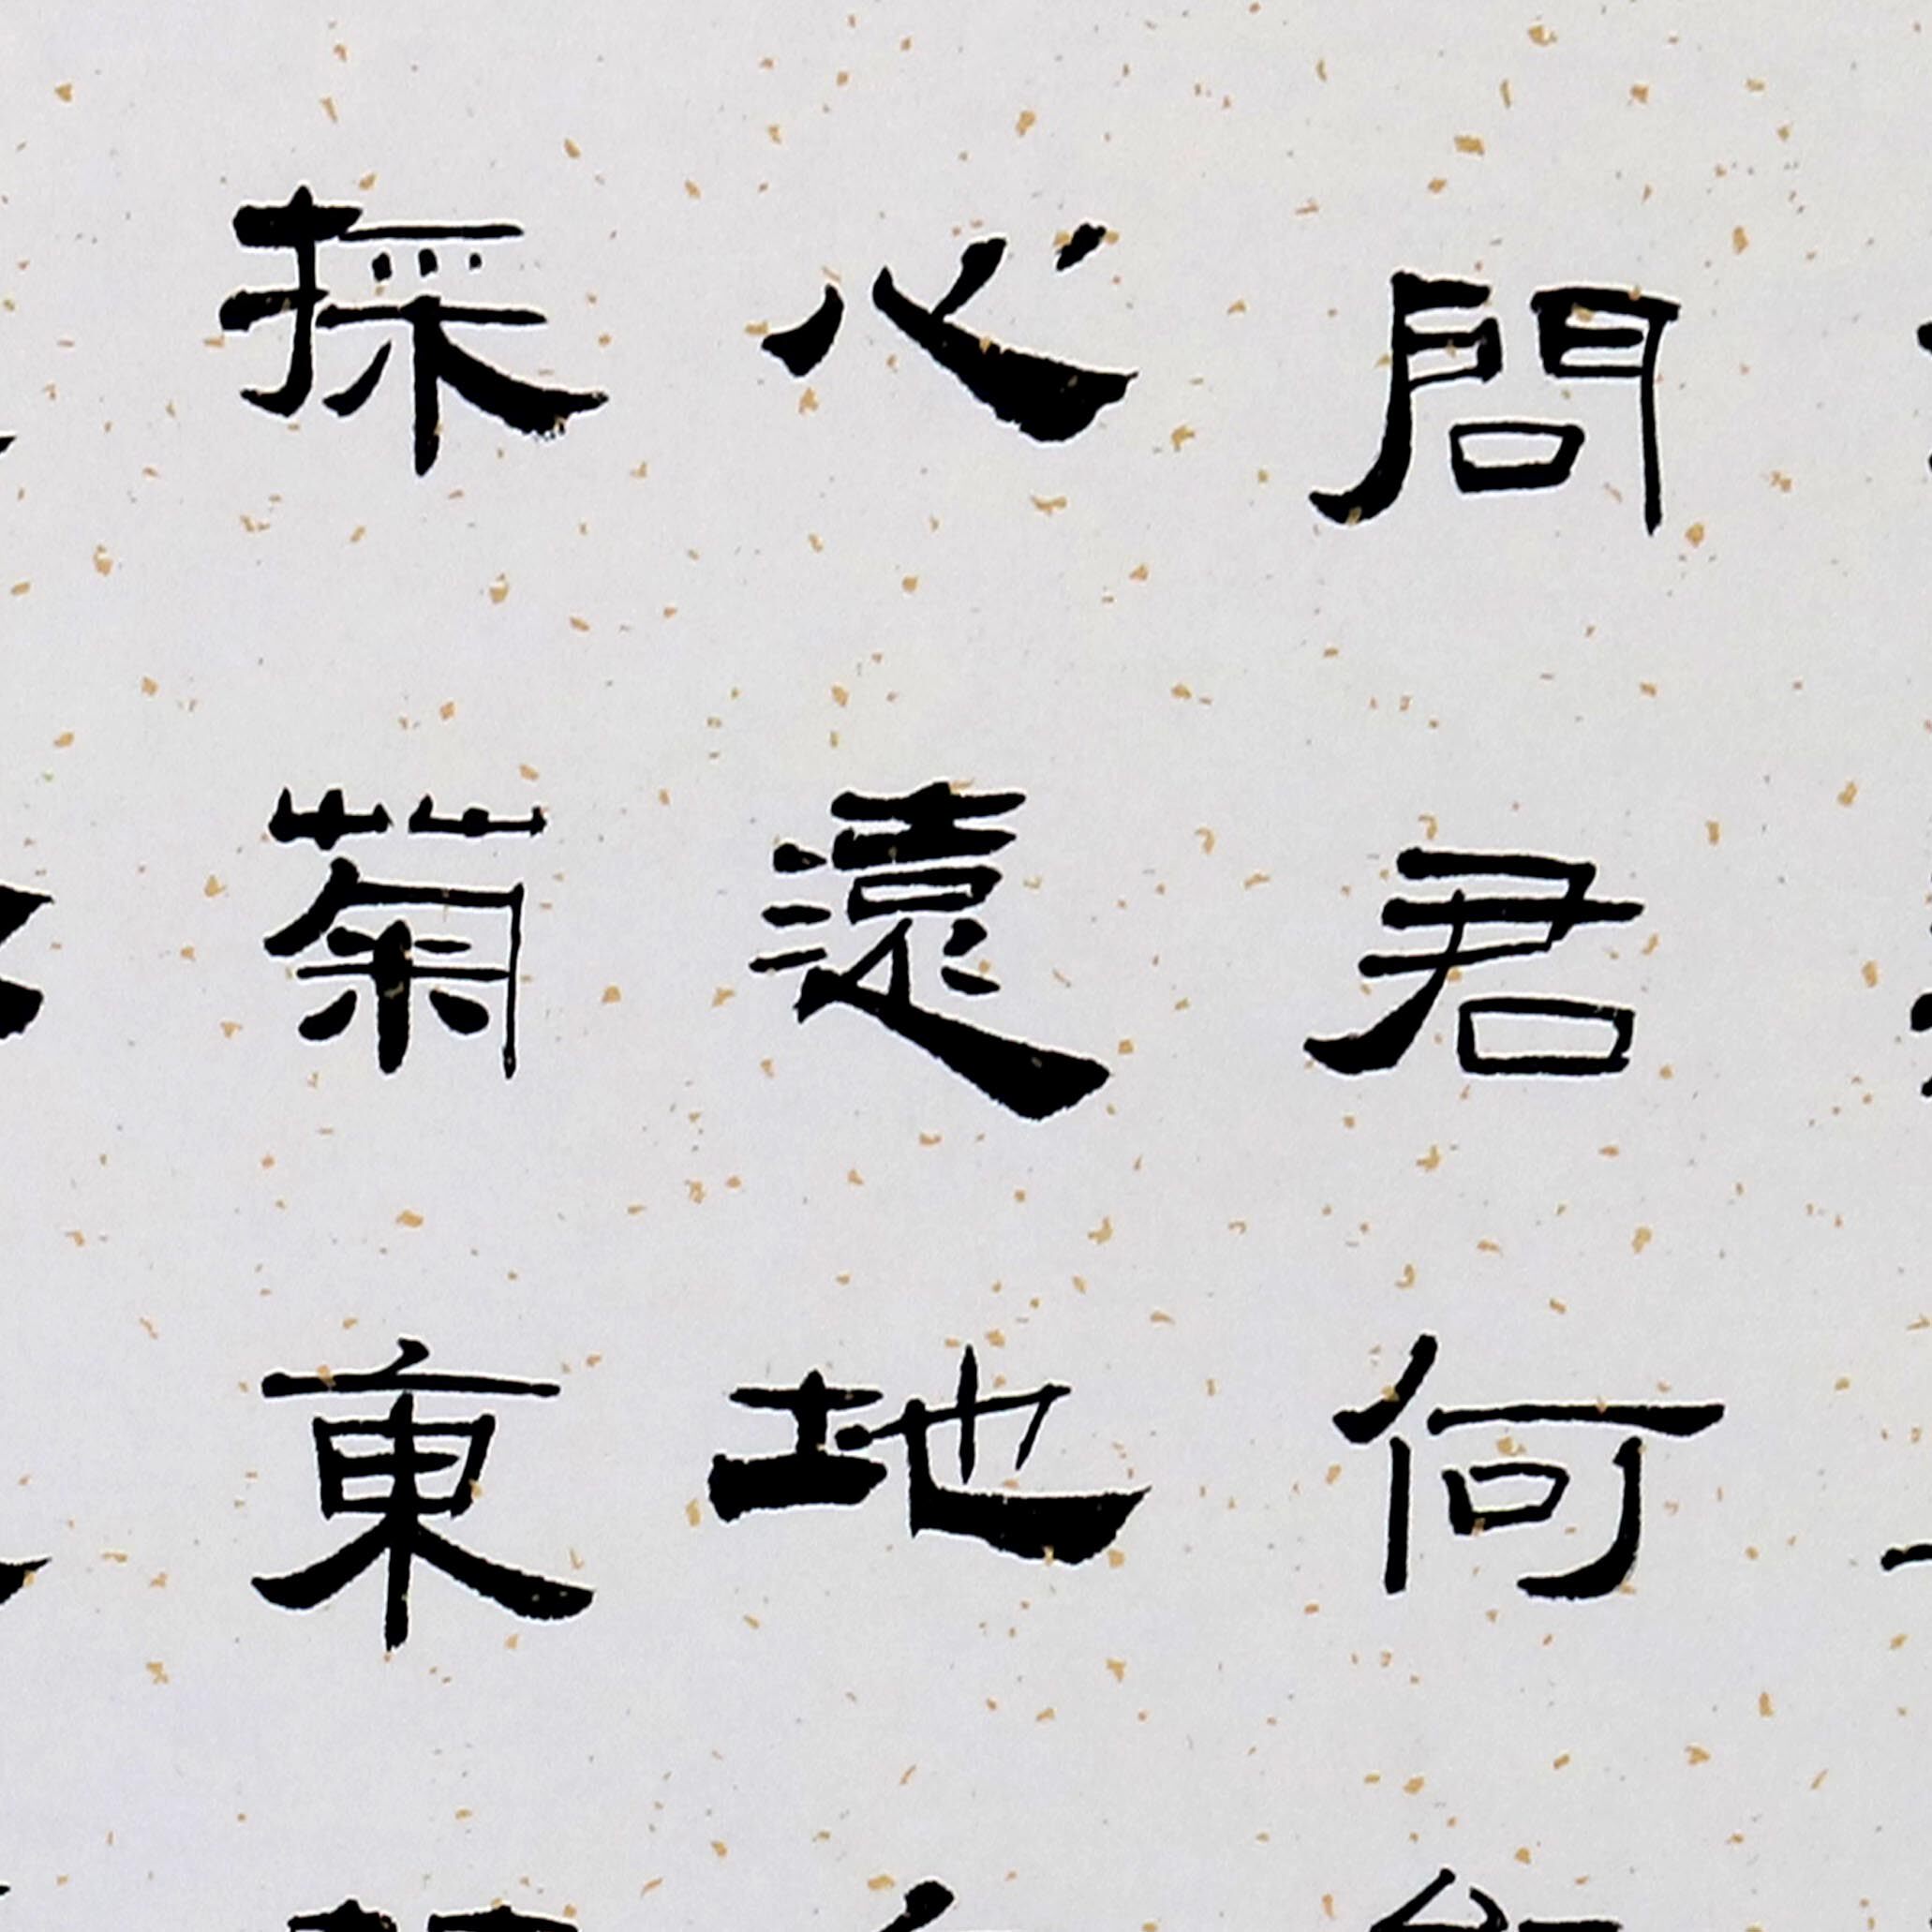 問君何
心遠地
採菊東